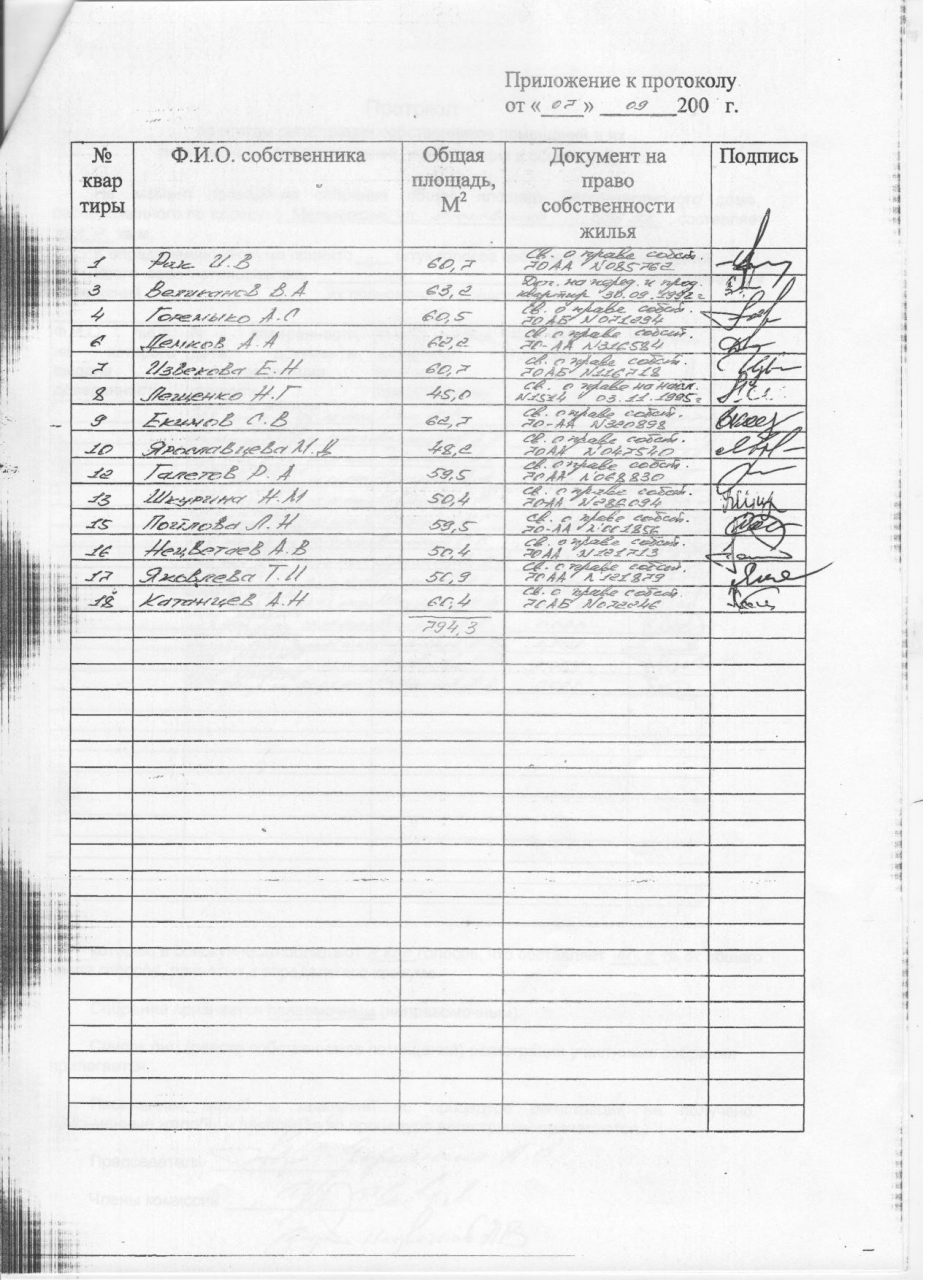 Приложение к протоколу
от « 07 » 09 200 г.
№ квар тиры Ф.И.О. собственника Общая площадь, М2 Документ на право собственности жилья Подпись
1 Рак И.В 60,7 Св. о праве собст. 70АА №085762
3 Великанов В.А 63,2 Дог. на перед. и прод. квартир 30.09.1992г
4 Горемыко А.С 60,5 Св. о праве собст. 70АБ №071294
6 Демков А.А 62,2 Св. о праве собст. 70-АА №316584
7 Извекова Е.Н 60,7 Св. о праве собст. 70АБ №116718
8 Лещенко Н.Г 45,0 Св. о праве на насл. №1514 03.11.1995г
9 Екимов С.В 62,7 Св. о праве собст. 70-АА №320898
10 Ярославцева М.Д 48,2 Св. о праве собст. 70АА №047540
12 Галетов Р.А 59,5 Св. о праве собст. 70АА №068830
13 Шкурина Н.М 50,4 Св. о праве собст. 70АА №286094
15 Л.Н 59,5 Св. о праве собст. 70-АА
16 Нецветаев А.В 50,4 Св. о праве собст. 70АА №121713
17 Яковлева Т.И 50,9 Св. о праве собст. 70АА №121879
18 Катанцев А.Н 60,4 Св. о праве собст. 70АБ
794,3